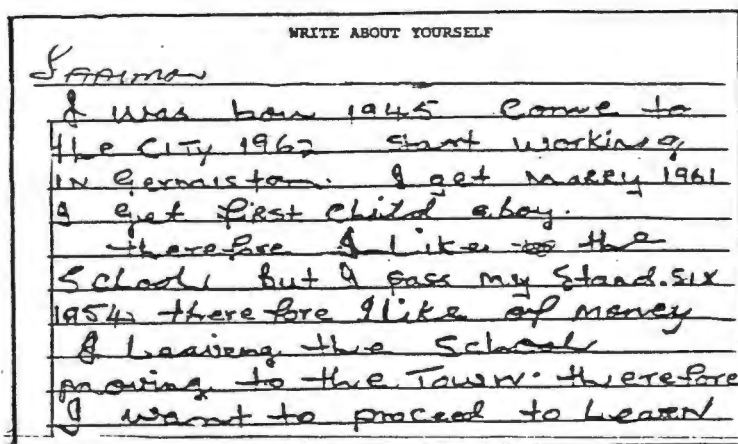 WRITE ABOUT YOURSELF
I was born 1945 Come to
the CITY 1962 Start working
IN Germiston. I get Marry 1961
I get first child a boy.
therefore I like the
School, but I pass my Stand.six
1954. therefore I like of money
I Leaving the School
moving to the Town. therefore
I want to proceed to Learn